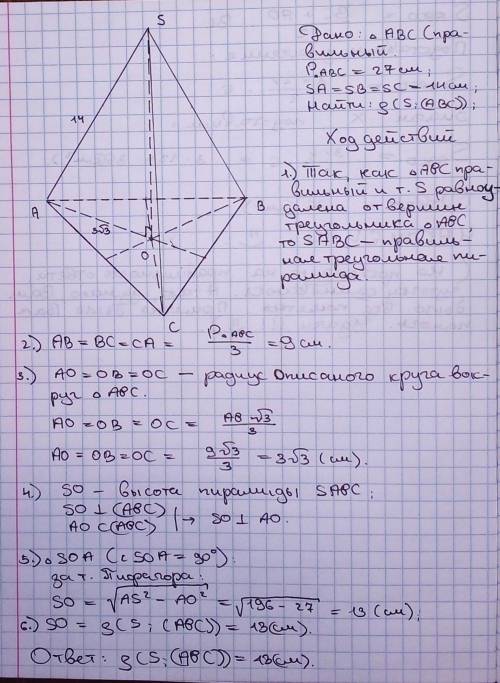 S
14
A
B
3√3
O
C
Дано: △ABC (пра-
вильный.
P△ABC = 27 см;
SA = SB = SC = 14 см;
Найти: ρ(S; (ABC));
Ход действий
1.) Так, как △ABC пра-
вильный и т. S равноу-
далена от вершин
треугольника △ABC,
то SABC – правиль-
ная треугольная пи-
рамида.
2.) AB = BC = CA = P△ABC/3 = 9 см.
3.) AO = OB = OC – радиус описаного круга вок-
руг △ABC.
AO = OB = OC = AB√3/3
AO = OB = OC = 9√3/3 = 3√3 (см).
4.) SO – высота пирамиды SABC;
SO ⊥ (ABC)
AO ⊂ (ABC) | → SO ⊥ AO.
5.) △SOA (∠SOA = 90°):
за т. Пифагора:
SO = √AS² – AO² = √196 – 27 = 13 (см);
6.) SO = ρ(S; (ABC)) = 13(см).
Ответ: ρ(S; (ABC)) = 13(см).